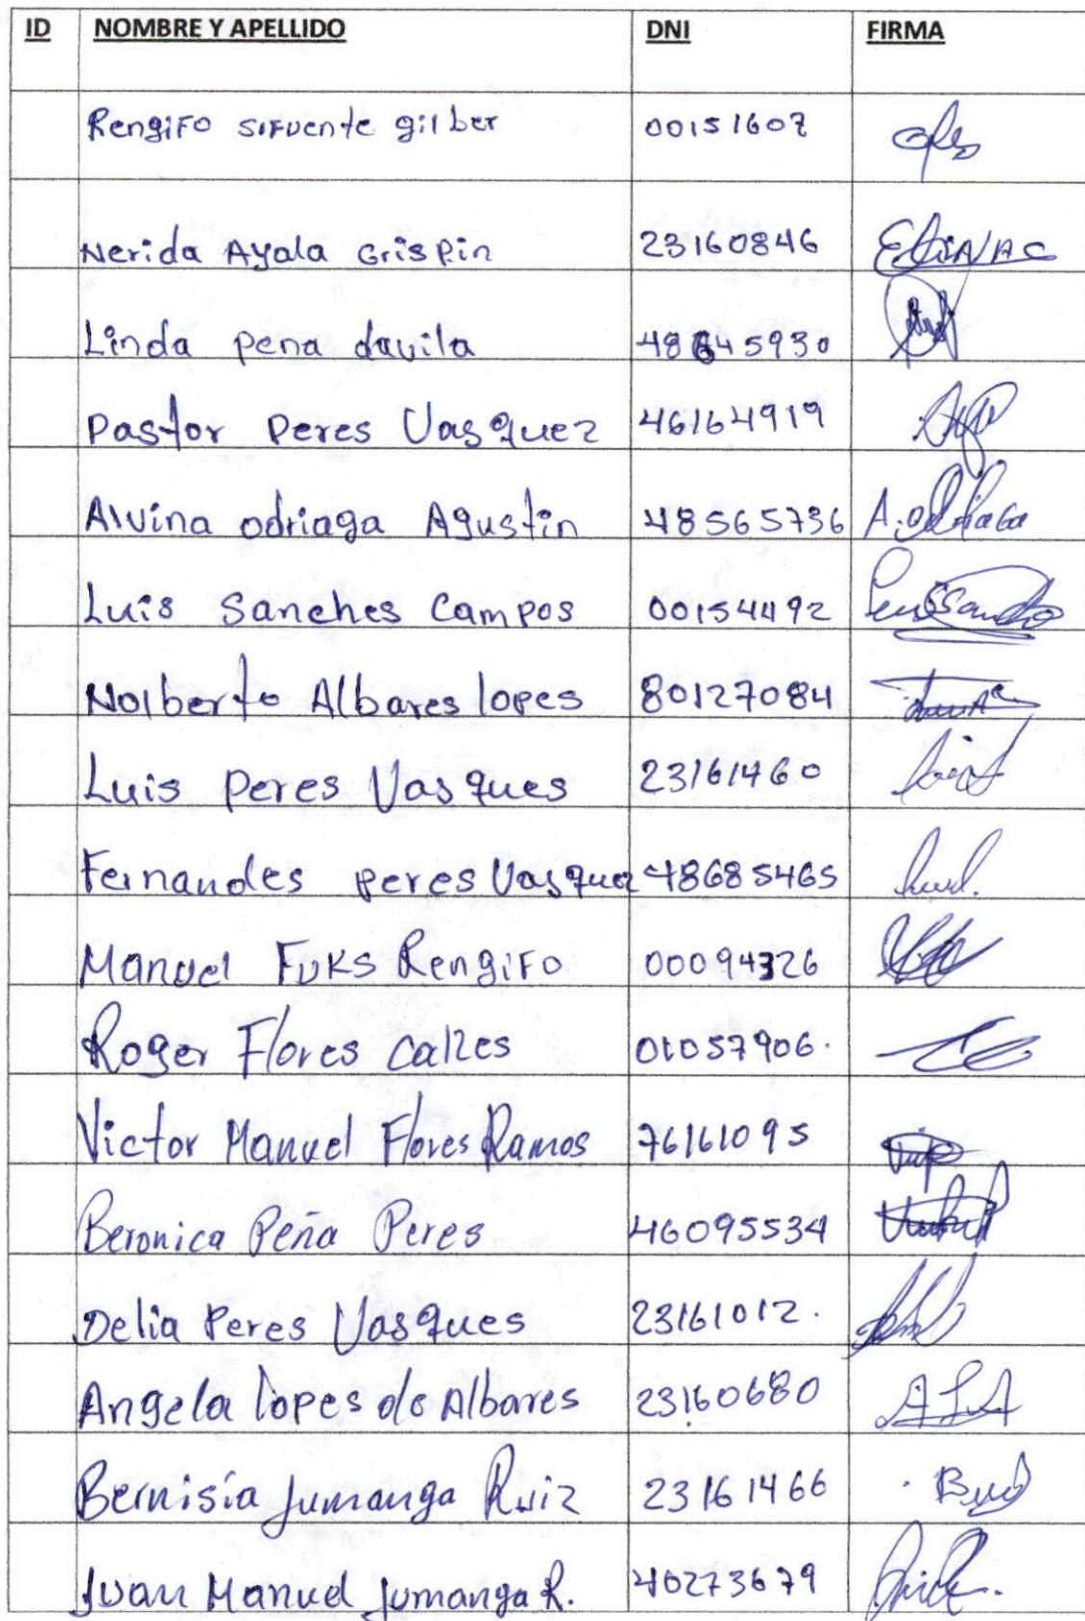 ID NOMBRE Y APELLIDO DNI FIRMA
Rengifo sifuente gilber 00151607
Nerida Ayala Grispin 23160846
Linda pena davila 48645930
Pastor Peres Vasquez 46164919
Alvina odriaga Agustin 48565736 A. odriaga
Luis Sanches Campos 00154492
Nolberto Albares lopes 80127084
Luis Peres Vasques 23161460
Fernandes peres Vasquez 48685465
Manuel Fuks Rengifo 00094326
Roger Flores 01057906.
Victor Manuel Flores Ramos 76161095
Beronica Peña Peres 46095534
Delia Peres Vasques 23161012.
Angela lopes de Albares 23160680
Bernisía Jumanga Ruiz 23161466
Juan Manuel Jumanga R. 40273679